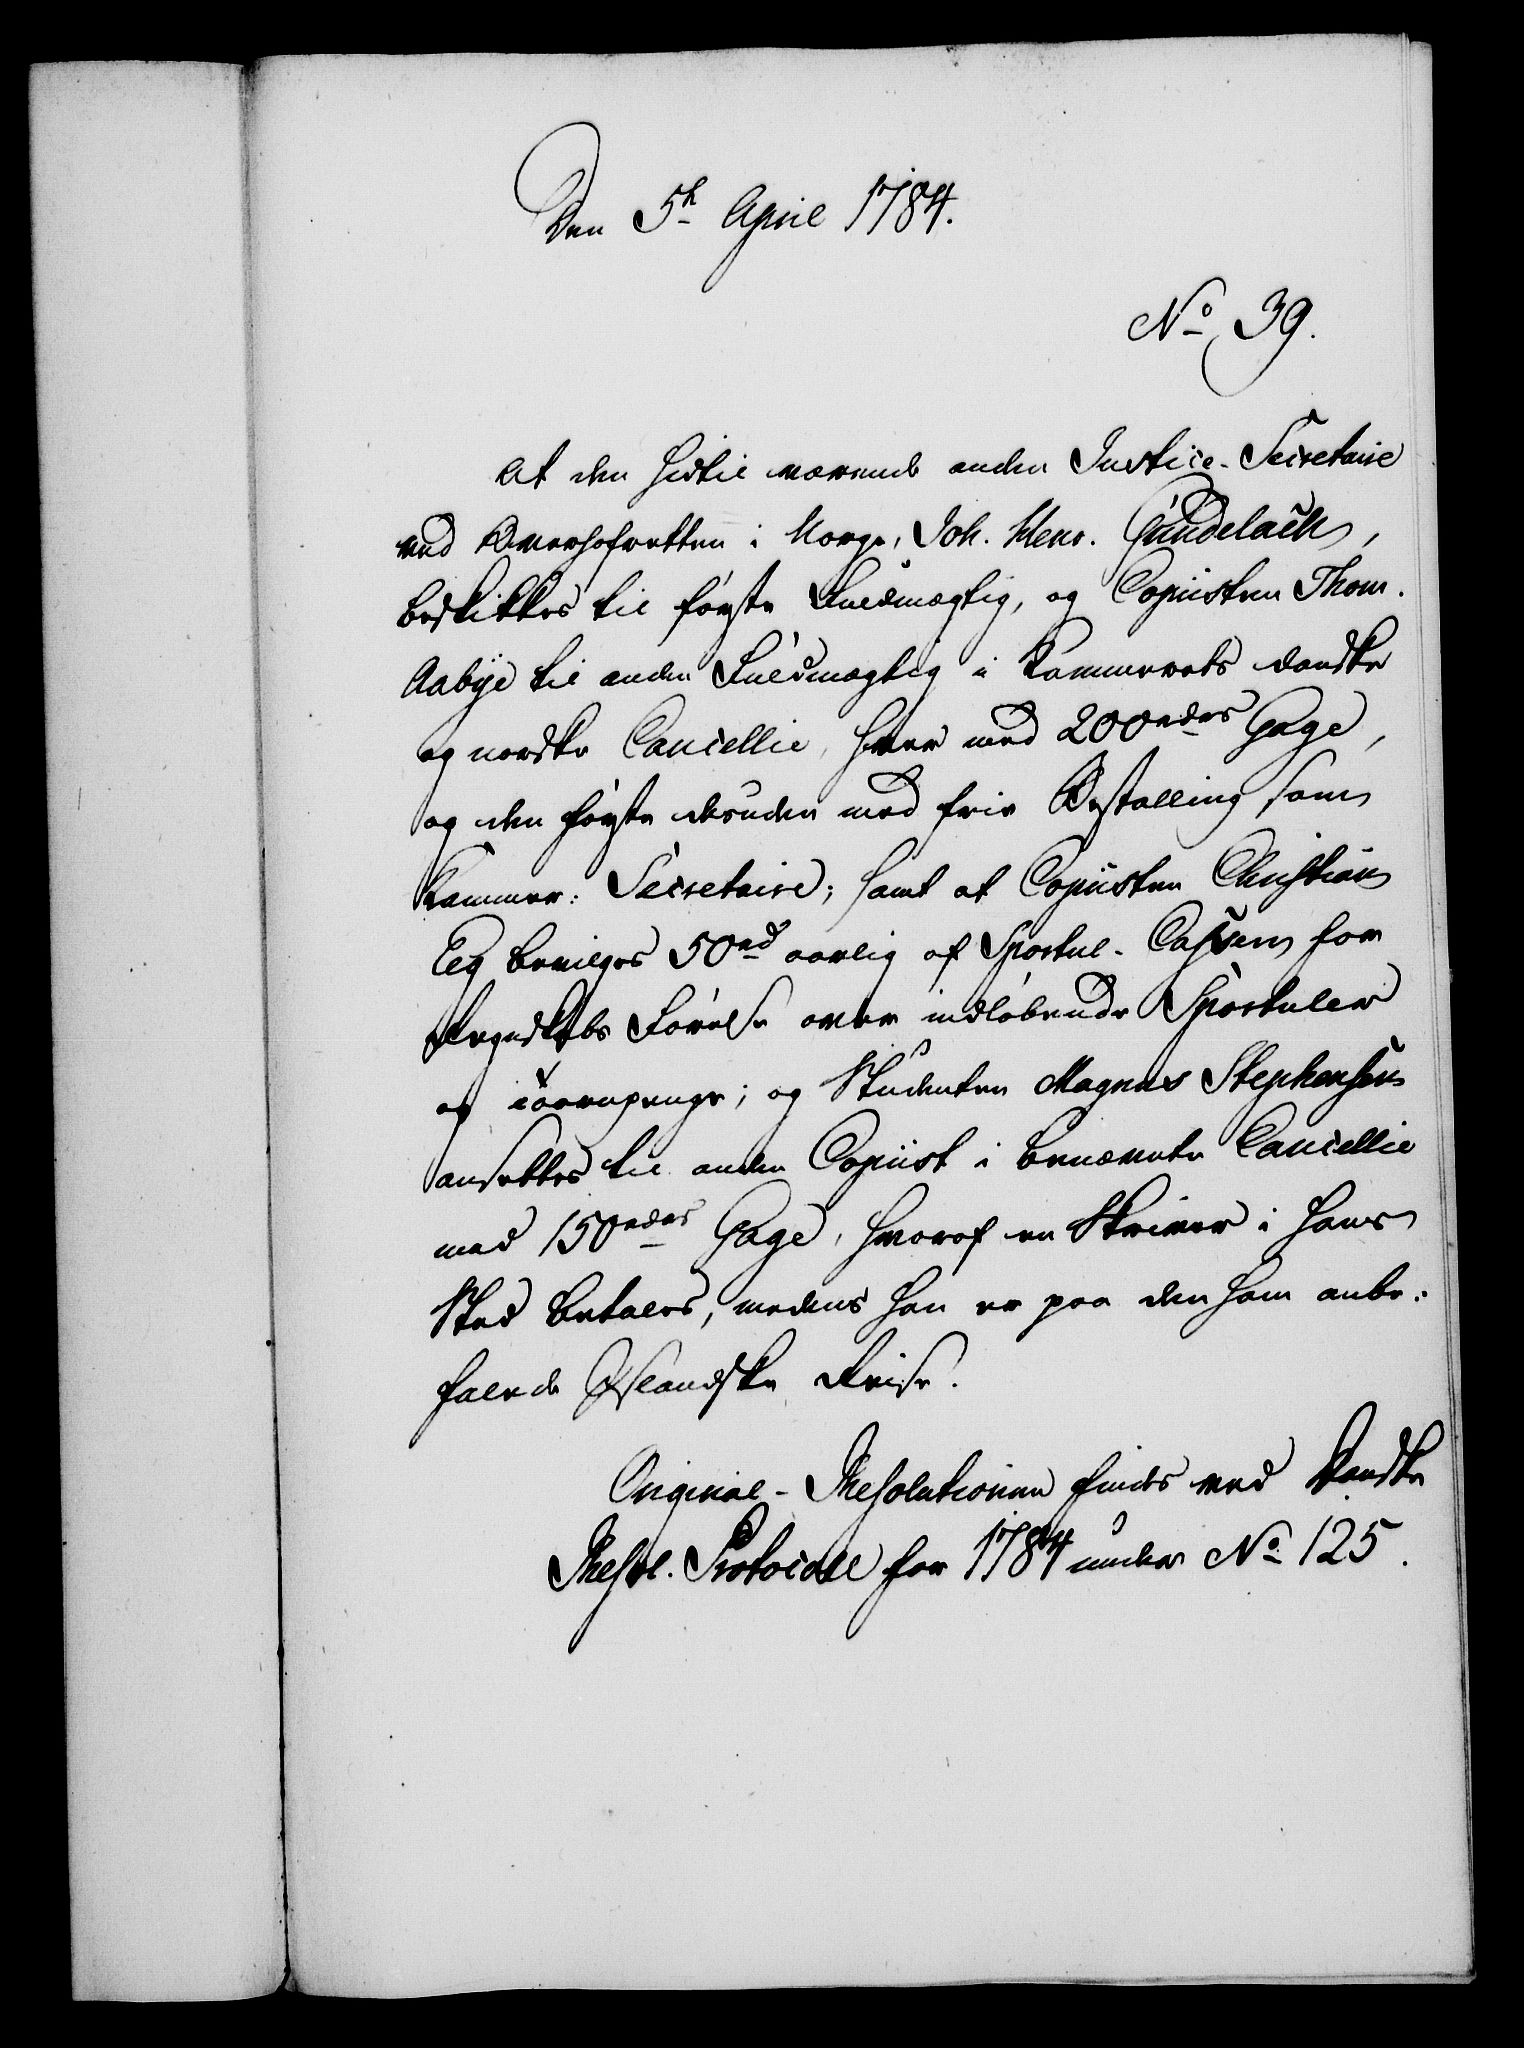 Den 5te April 1784.
No 39.
At den hidtil værende anden Justice-Secretaire
ved Overhofretten i Norge, Joh. Henr. Gundelach,
beskikkes til første Fuldmægtig, og Copiisten Thom.
Aabye til anden Fuldmægtig i Kammerets danske
og norske Cancellie, hver med 200rdes Gage,
og den første desuden med frie Bestalling som
Kammer: Secretaire; samt at Copiisten Christian
Eeg bevilges 50rd aarlig af Sportul-Cassen for
Regnskabs Førelse over indløbende Sportuler
og ; og Studenten Magnus Stephensen
ansettes til anden Copiist i benævnte Cancellie
med 150rdes Gage, hvoraf en Skriver i hans
Sted betales, medens han er paa den ham anbe-
falede Islandske Reise.
Original-Resolutionen findes ved Danske
Resol. Protocoll for 1784 under No 125.